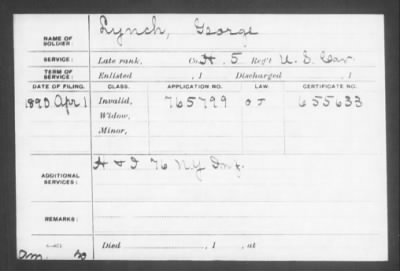 NAME OF SOLDIER: Lynch, George
SERVICE: Late rank, Co. H, 5 Reg't U. S. Cav.
TERM OF SERVICE: Enlisted , 1 Discharged , 1
DATE OF FILING. CLASS. APPLICATION NO. LAW. CERTIFICATE NO.
1890 Apr 1 Invalid, 765799 O L 655633
Widow,
Minor,
ADDITIONAL SERVICES: H & I 76 N.Y. Inf.
REMARKS:
Died , 1 , at